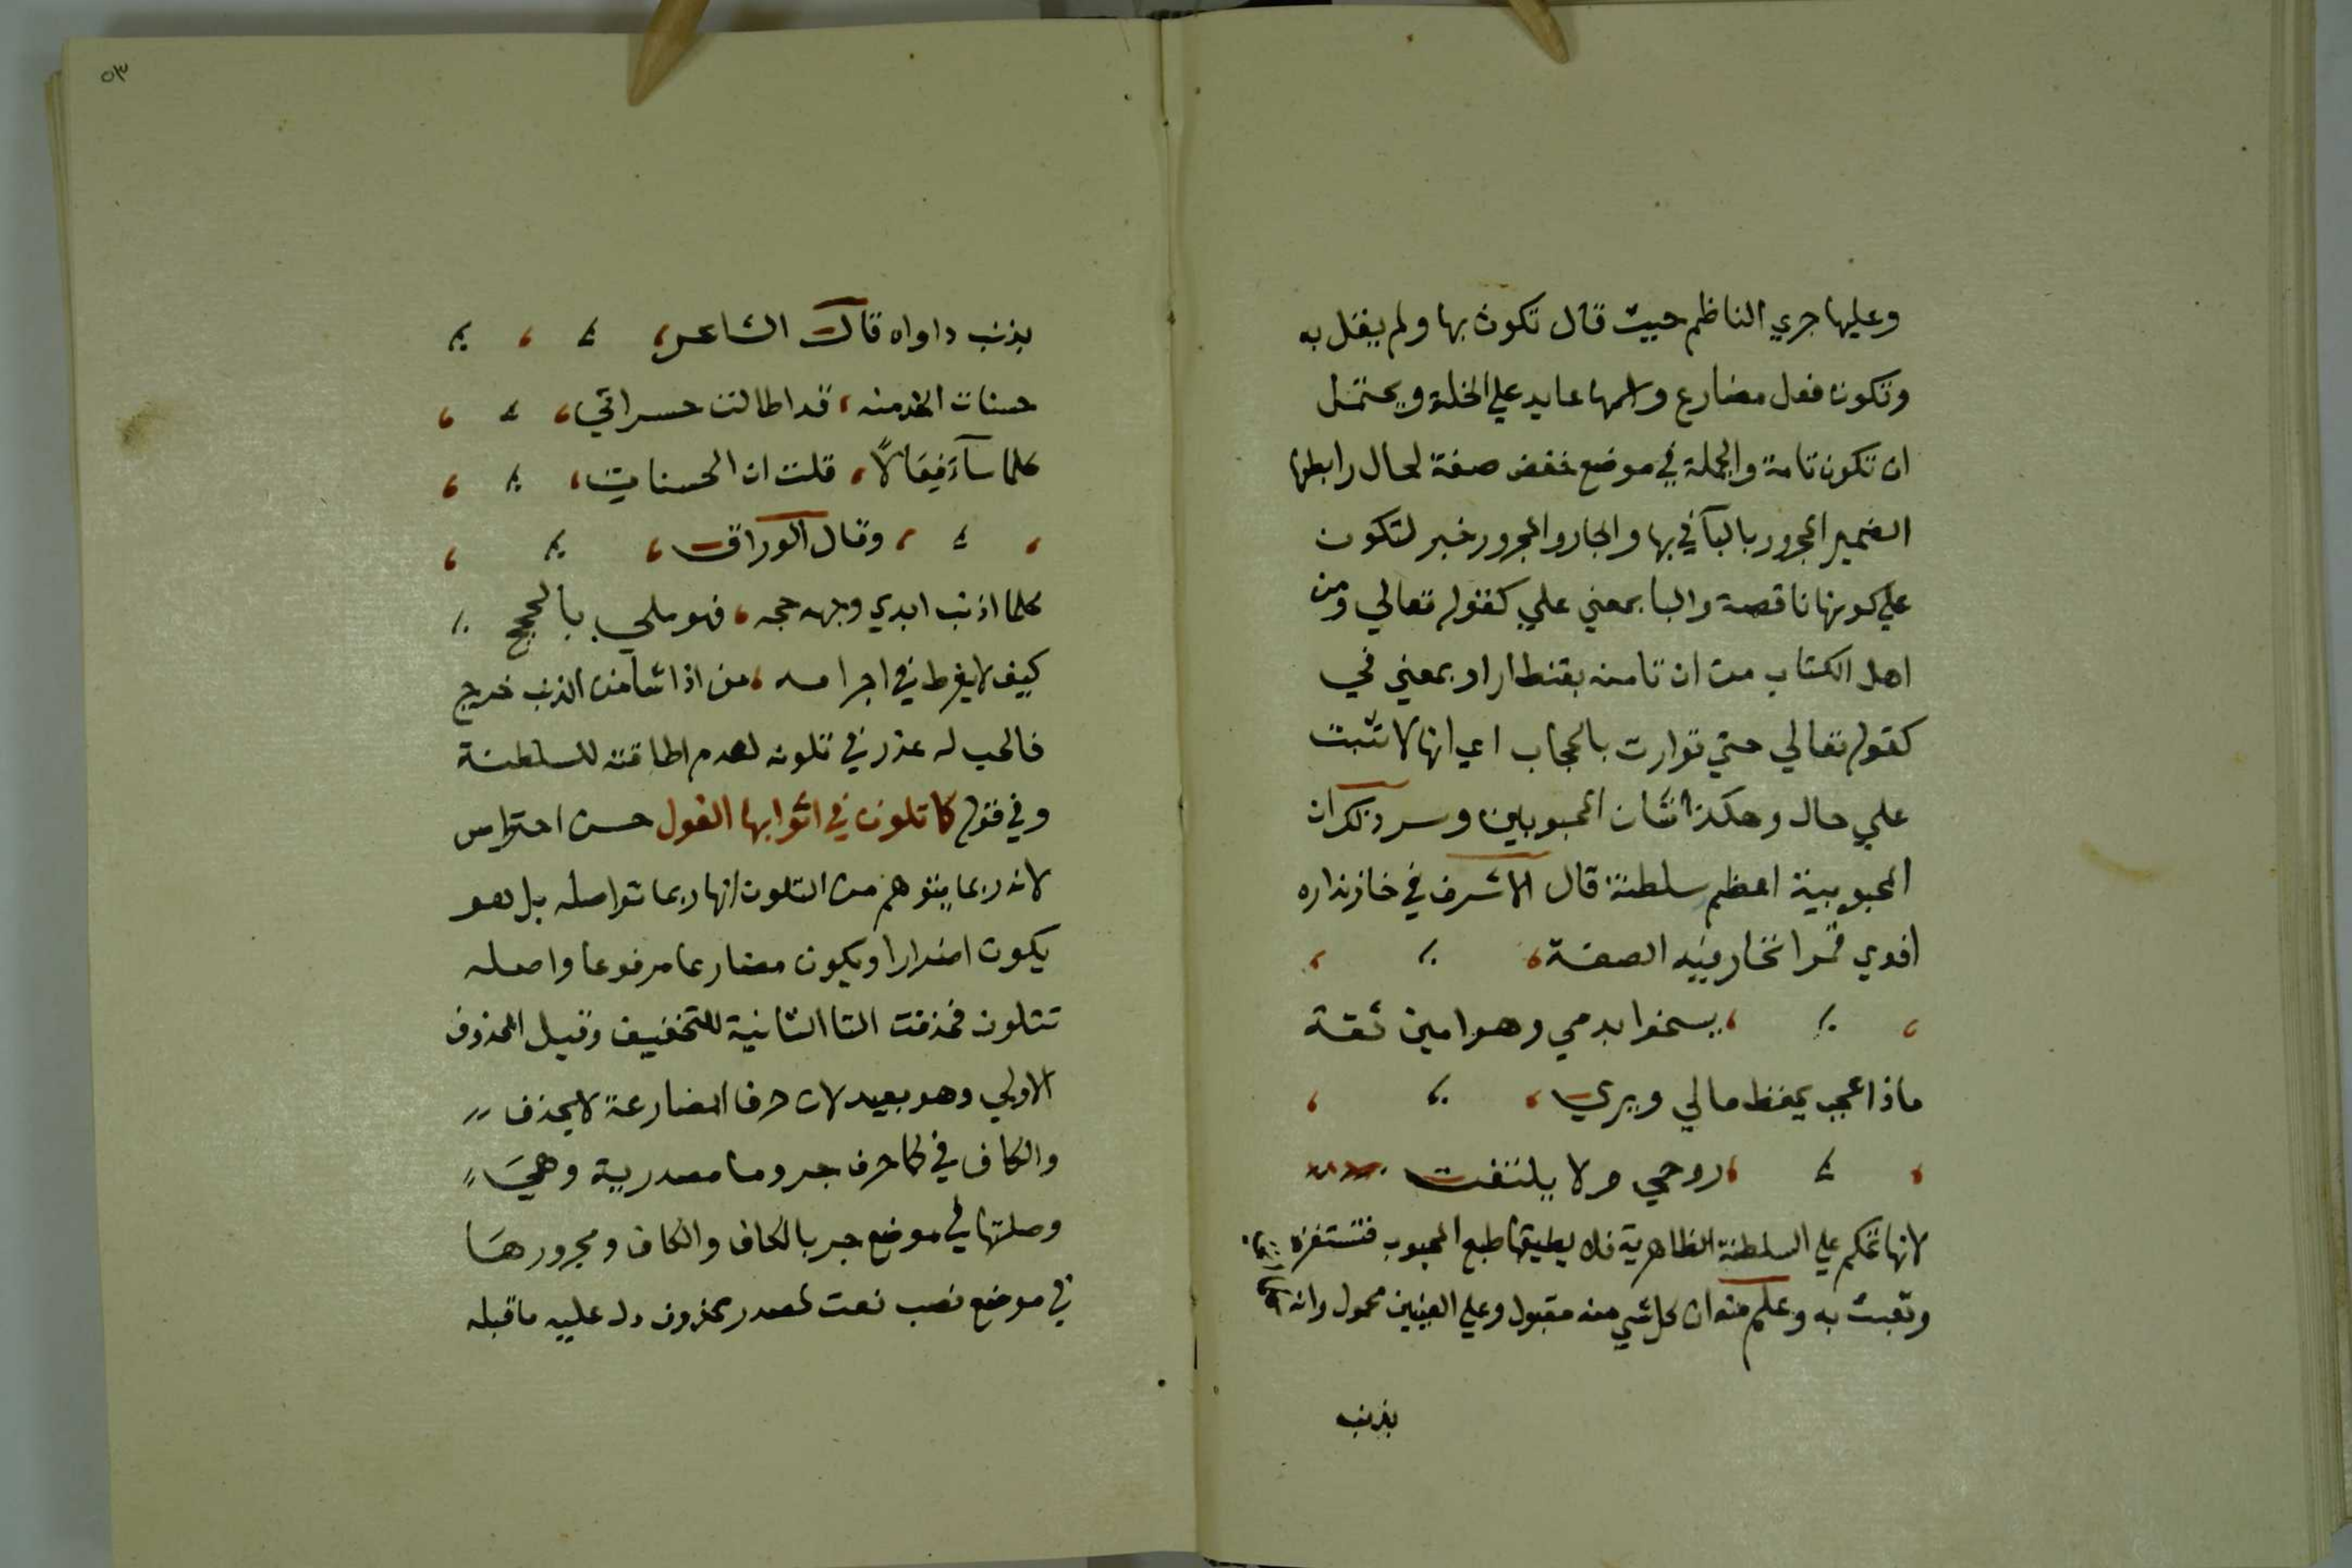 وعليها جري الناظم حيث قال تكون بها ولم يقل به
وتكون فعل مضارع واسمها عايد علي الخلة ويحتمل
ان تكون تامة والجملة في موضع خفض صفة لحال رابطها
الضمير المجرور بالبآ في بها والجار والمجرور خبر لتكون
علي كونها ناقصة والبا بمعني علي كقوله تعالي ومن
اهل الكتاب من ان تامنه بقنطار او بمعني في
كقوله تعالي حتي توارت بالحجاب اي انها لا تثبت
علي حال وهكذا شان المحبوبين وسر ذلك ان
المحبوبية اعظم سلطنة قال الاشرف في خازنداره
افدي قمرا تحار فيه الصفة
يسخوا بدمي وهو امين ثقة
ماذا عجب يحفظ مالي ويري
روحي ولا يلتفت
لانها تحكم علي السلطنة الظاهرية فلا يطيقها طبع المحبوب فتستفزه
وتعبث به وعلم منه ان كل شي منه مقبول وعلي العينين محمول وانه
بذنب
٥٣
بذنب داواه قال الشاعر
حسنات الخد منه، قد اطالت حسراتي
كلما سآء فعالاً، قلت ان الحسنات
وقال الوراق
كلما اذنب ابدي وجهه حجه، فهو ملي بالحجج
كيف لا يفرط في اجرامه، من اذا شا من الذنب خرج
فالمحب له عذر في تلونه لعدم اطاقته للسلطنة
وفي قوله كما تلون في اثوابها الغول حسن احتراس
لانه ربما يتوهم من التلون انها ربما تواصله بل هو
يكون اضرارا ويكون مضارعا مرفوعا واصله
تتلون فحذفت التا الثانية للتخفيف وقيل المحذوف
الاولي وهو بعيد لان حرف المضارعة لا يحذف
والكاف في كما حرف جر وما مصدرية وهيَ
وصلتها في موضع جر بالكاف والكاف ومجرورهَا
في موضع نصب نعت لمصدر محذوف دل عليه ما قبله